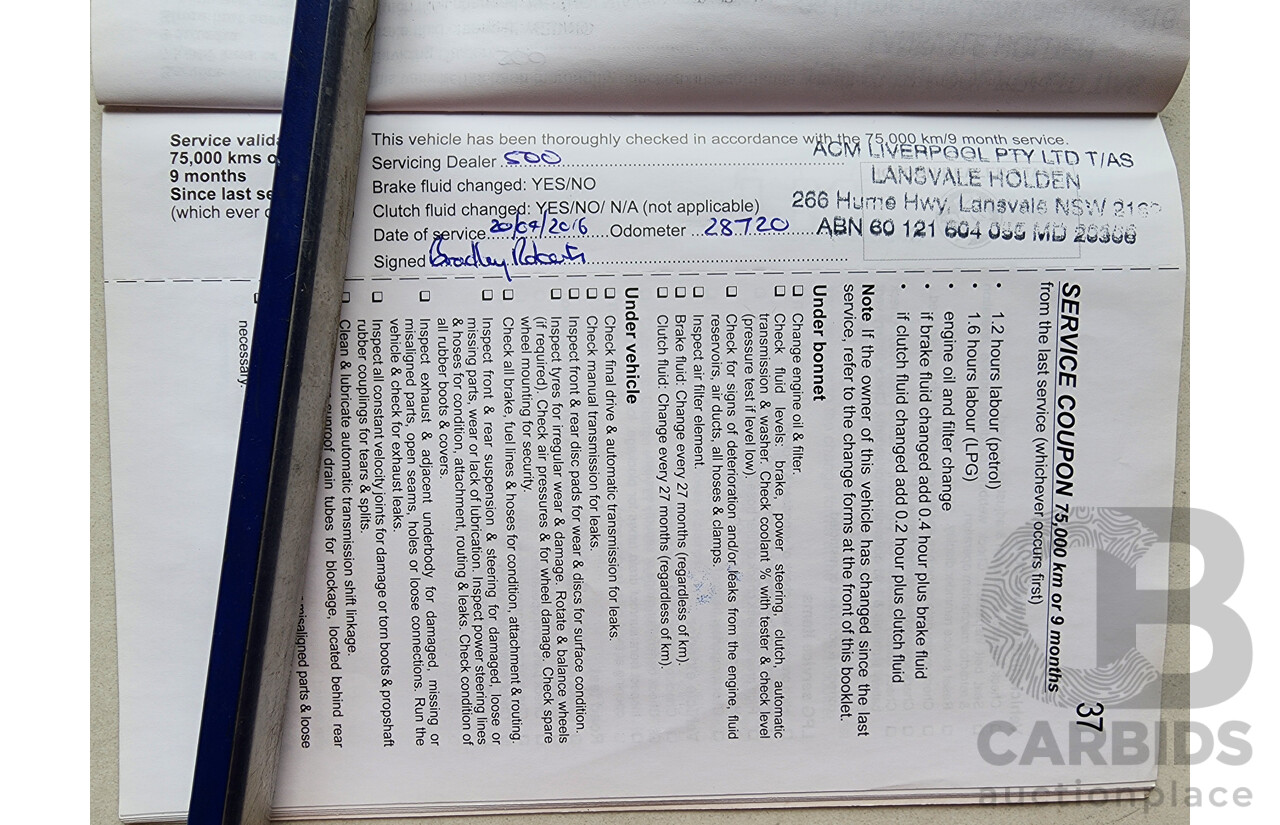 This vehicle has been thoroughly checked in accordance with the 75,000 km/9 month service.
Servicing Dealer 500
Brake fluid changed: YES/NO
Clutch fluid changed: YES/NO/ N/A (not applicable)
Date of service 20/04/2016 Odometer 28720
Signed Bradley Roberts
Service valid
75,000 kms o
9 months
Since last se
(which ever
ACM LIVERPOOL PTY LTD T/AS
LANSVALE HOLDEN
266 Hume Hwy, Lansvale NSW
ABN 60 121 604 095 MD
SERVICE COUPON 75,000 km or 9 months
37
from the last service (whichever occurs first)
• 1.2 hours labour (petrol)
• 1.6 hours labour (LPG)
• engine oil and filter change
• if brake fluid changed add 0.4 hour plus brake fluid
• if clutch fluid changed add 0.2 hour plus clutch fluid
Note If the owner of this vehicle has changed since the last
service, refer to the change forms at the front of this booklet.
Under bonnet
❑ Change engine oil & filter.
❑ Check fluid levels: brake, power steering, clutch, automatic
transmission & washer. Check coolant % with tester & check level
(pressure test if level low).
❑ Check for signs of deterioration and/or leaks from the engine, fluid
reservoirs, air ducts, all hoses & clamps.
❑ Inspect air filter element.
❑ Brake fluid: Change every 27 months (regardless of km).
❑ Clutch fluid: Change every 27 months (regardless of km).
Under vehicle
❑ Check final drive & automatic transmission for leaks.
❑ Check manual transmission for leaks.
❑ Inspect front & rear disc pads for wear & discs for surface condition.
❑ Inspect tyres for irregular wear & damage. Rotate & balance wheels
(if required). Check air pressures & for wheel damage. Check spare
wheel mounting for security.
❑ Check all brake, fuel lines & hoses for condition, attachment & routing.
❑ Inspect front & rear suspension & steering for damaged, loose or
missing parts, wear or lack of lubrication. Inspect power steering lines
& hoses for condition, attachment, routing & leaks. Check condition of
all rubber boots & covers.
❑ Inspect exhaust & adjacent underbody for damaged, missing or
misaligned parts, open seams, holes or loose connections. Run the
vehicle & check for exhaust leaks.
❑ Inspect all constant velocity joints for damage or torn boots & propshaft
rubber couplings for tears & splits.
❑ Clean & lubricate automatic transmission shift linkage.
sunroof drain tubes for blockage, located behind rear
misaligned parts & loose
necessary.
CB
CARBIDS
auctionplace